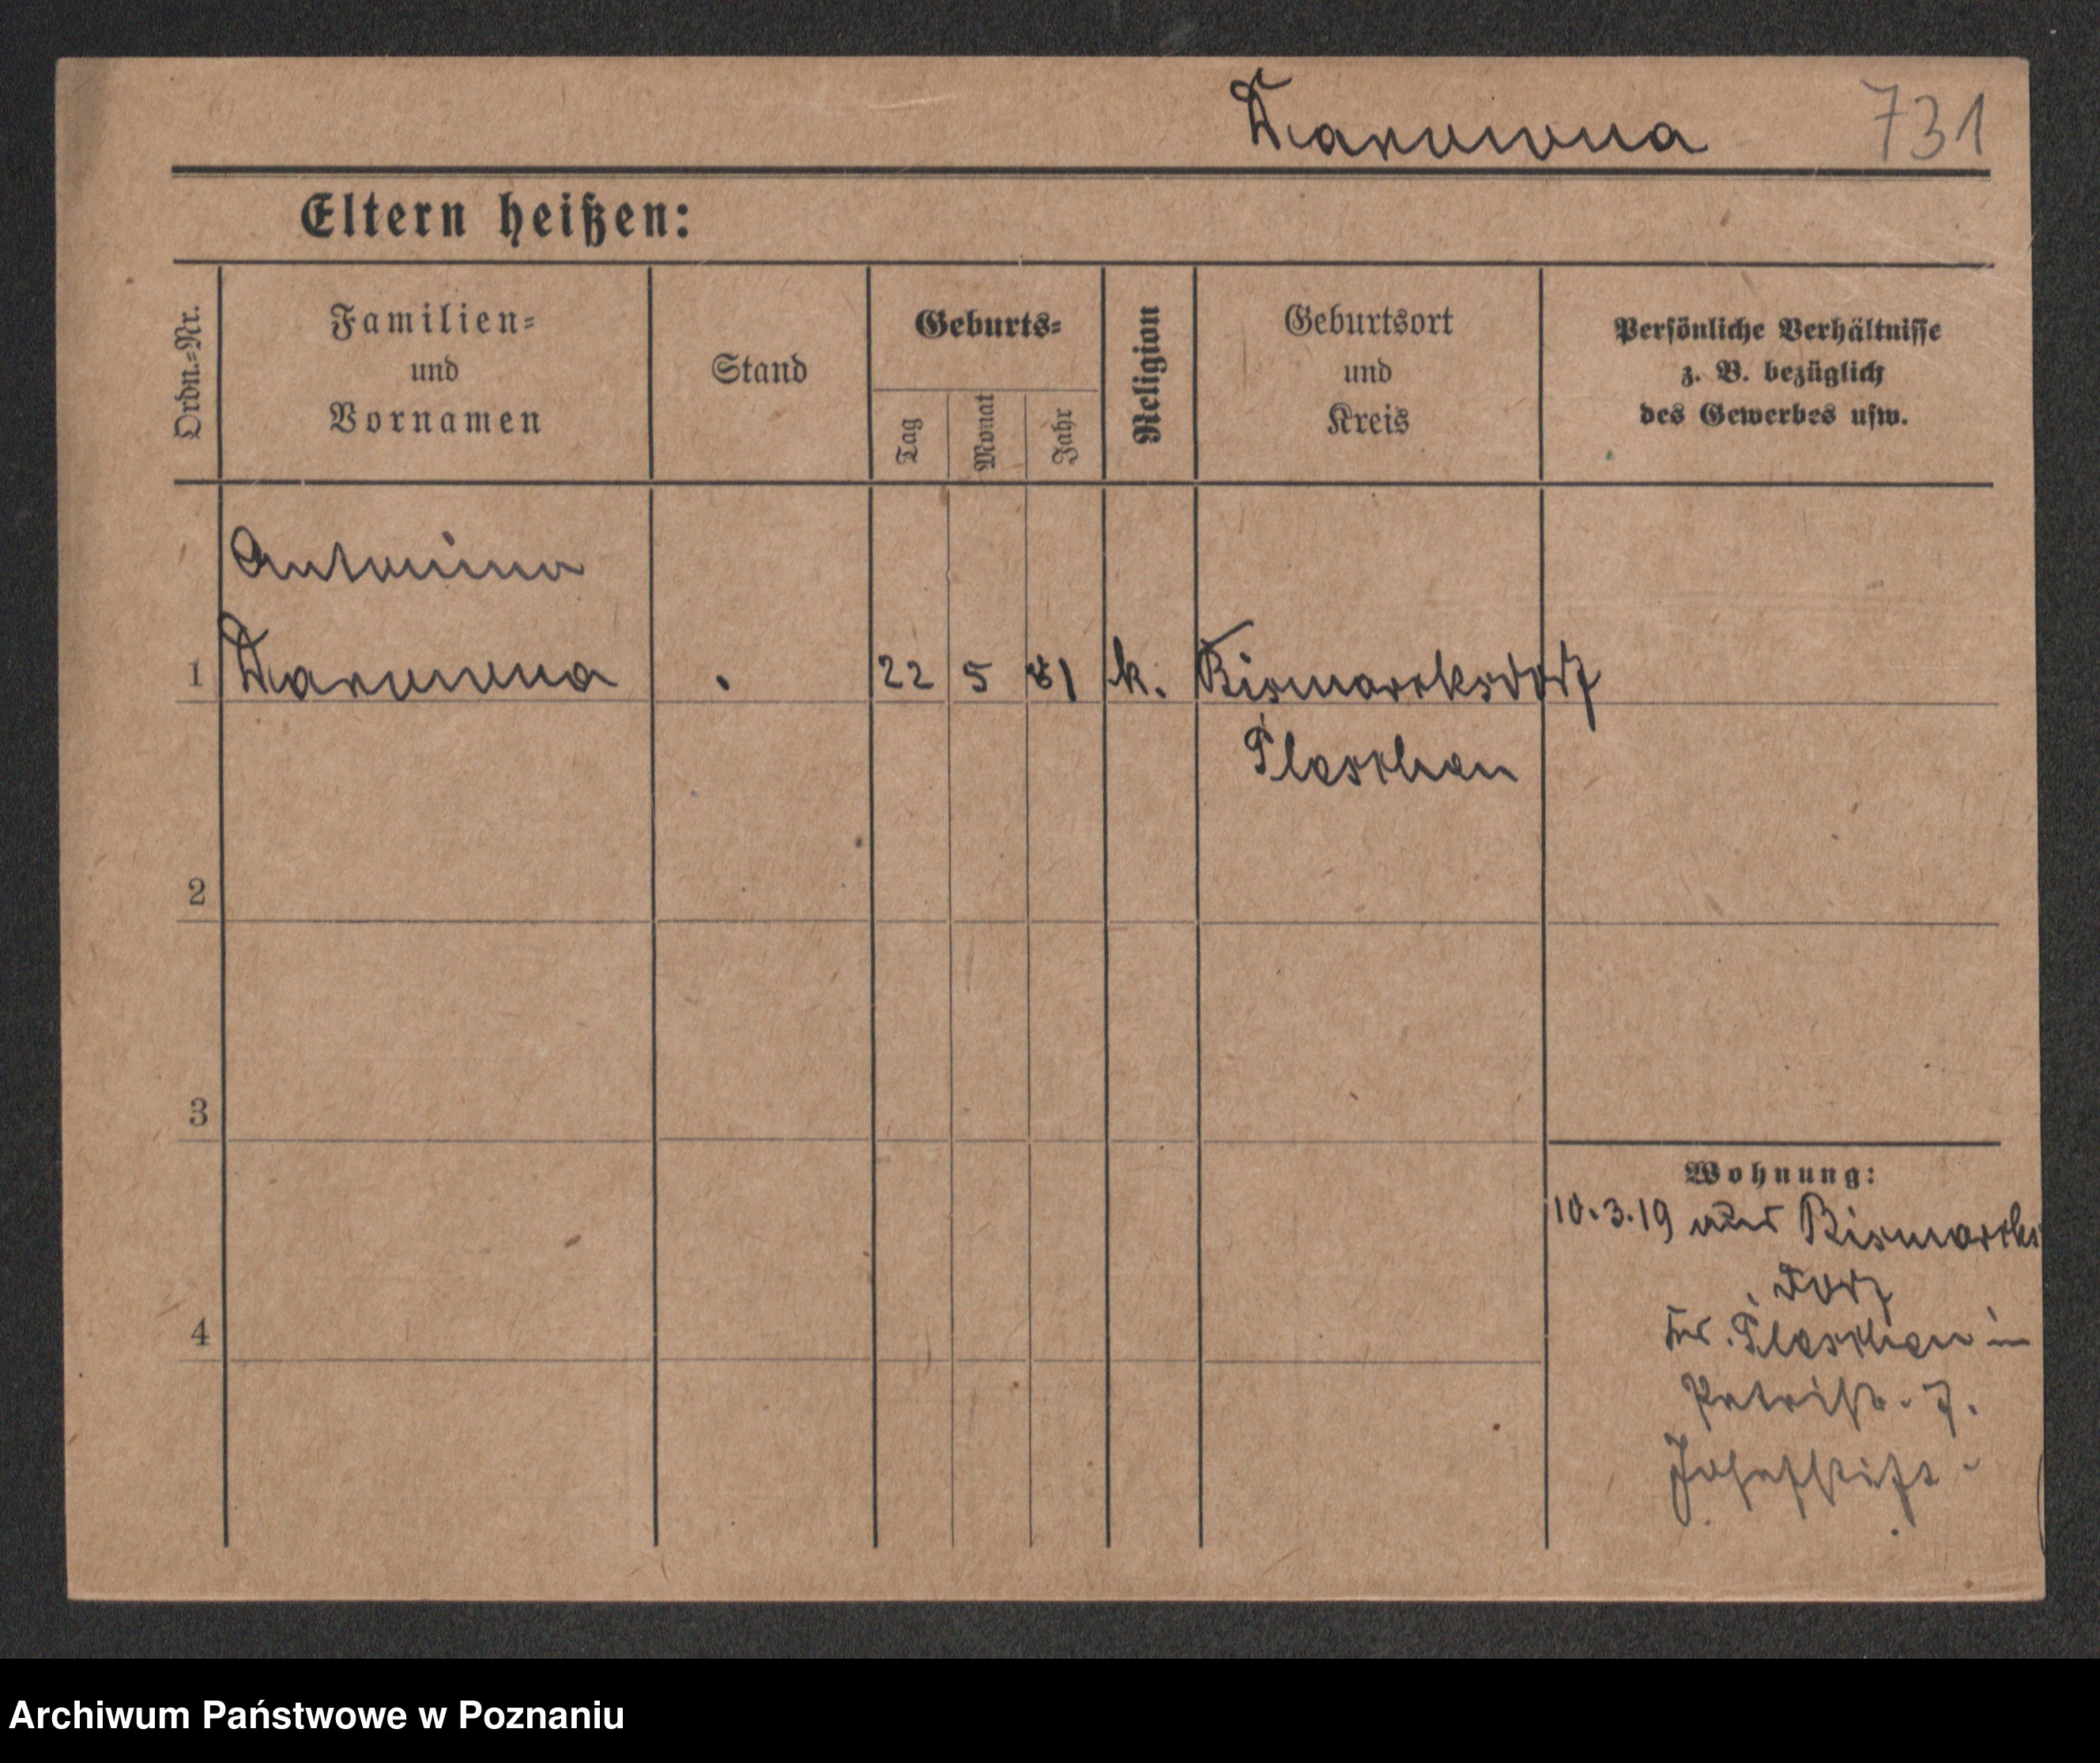 731
Eltern heißen:
Ordn.=Nr.
Familien=
und
Vornamen
Stand
Geburts=
Tag
Monat
Jahr
Religion
Geburtsort
und
Kreis
Persönliche Verhältnisse
z. B. bezüglich
des Gewerbes usw.
Antonina
1 22 5 81 k. Bismarcksdorf
Pleschen
2
3
4
Wohnung:
10.3.19 aus Bismarcks
dorf
Kr. Pleschen in
Petristr. 7.
Josefstift
Archiwum Państwowe w Poznaniu